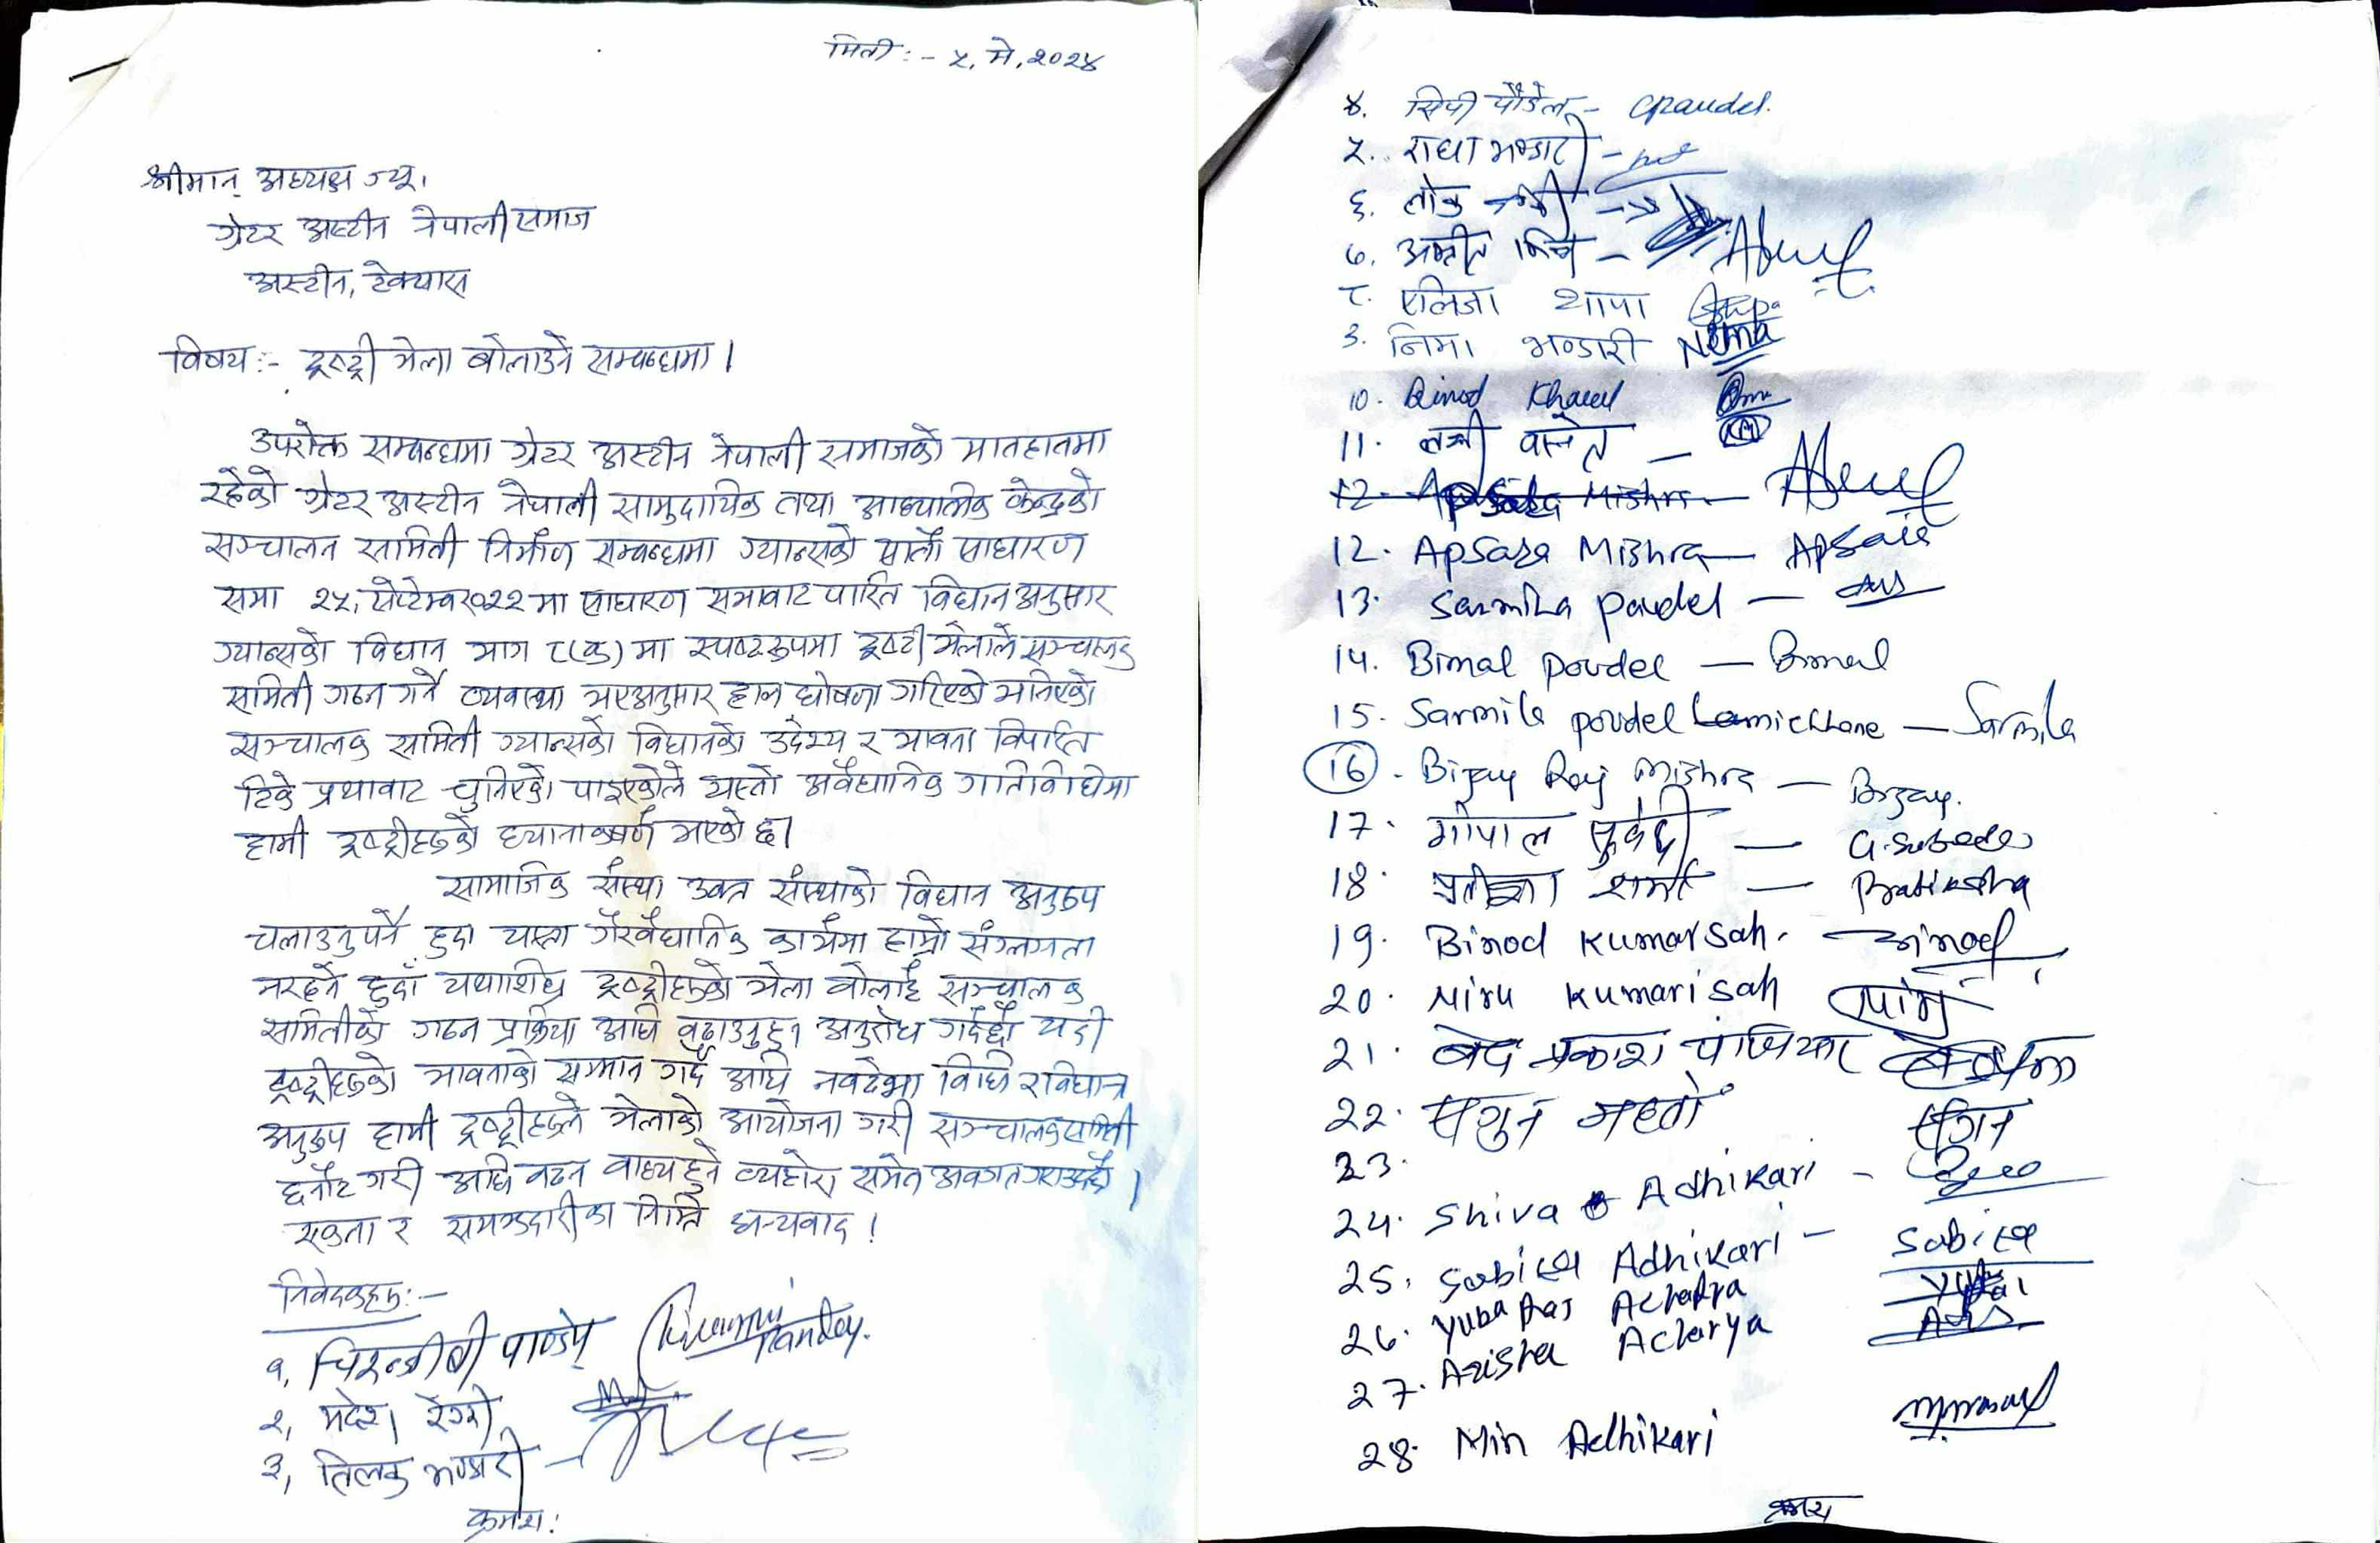 मिती :- ५, मे, २०२४
श्रीमान् अध्यक्ष ज्यू,
ग्रेटर अस्टीन नेपाली समाज
अस्टीन, टेक्सास
विषय :- ट्रष्ट्री भेला बोलाउने सम्बन्धमा ।
उपरोक्त सम्बन्धमा ग्रेटर अस्टीन नेपाली समाजको मातहातमा
रहेको ग्रेटर अस्टीन नेपाली सामुदायिक तथा आध्यात्मिक केन्द्रको
सञ्चालन समिती निर्माण सम्बन्धमा ग्यान्सको सातौं साधारण
सभा २५, सेप्टेम्बर २०२२ मा साधारण सभाबाट पारित विधान अनुसार
ग्यान्सको विधान भाग ८(क) मा स्पष्टरुपमा ट्रष्टी भेलाले सञ्चालक
समिती गठन गर्ने व्यवस्था भए अनुसार हाल घोषणा गरिएको भनिएको
सञ्चालक समिती ग्यान्सको विधानको उदेश्य र भावना विपरित
टिके प्रथाबाट चुनिएको पाइएकोले यस्तो अवैधानिक गतिविधिमा
हामी ट्रष्ट्रीहरुको ध्यानाकर्षण भएको छ।
सामाजिक संस्था उक्त संस्थाको विधान अनुरुप
चलाउनुपर्ने हुदा यस्ता गैरवैधानिक कार्यमा हाम्रो संग्लग्नता
नरहने हुदाँ यथाशिघ्र ट्रष्ट्रीहरुको भेला बोलाई सञ्चालक
समितीको गठन प्रक्रिया अघि बढाउनुहुन अनुरोध गर्दछौं यदी
ट्रष्ट्रीहरुको भावनाको सम्मान गर्दै अघि नबढेमा विधि र विधान
अनुरुप हामी ट्रष्ट्रीहरुले भेलाको आयोजना गरी सञ्चालक समिती
छनौट गरी अघि बढ्न वाध्य हुने व्यहोरा समेत अवगत गराउदछौं ।
एकता र समझदारीका निम्ति धन्यवाद !
निवेदकहरु :-
१, चिरन्जीबी पाण्डेय Pandey.
२, रेग्मी
३, तिलक भण्डारी -
क्रमश:
४. सिपी पौडेल - cpaudel.
५. राधा भण्डारी -
६. लोक
७. -
८. एलिजा थापा
९. निमा भण्डारी Nema
10. Binod Khanal
11. -
12. Apsara Mishra —
12. Apsara Mishra — Apsara
13. Sarmila Paudel —
14. Bimal Poudel — Bimal
15. Sarmila poudel Lamichhane — Sarmila
16. Bijay Raj Mishra — Bijay.
17. गोपाल सुवेदी — G.Subedi
18. प्रतीक्षा शर्मा — Pratiksha
19. Binod Kumar Sah. — Binod
20. Niru Kumari Sah
21. बेद प्रकाश पंजियार
22. सगुन महतो सगुन
23.
24. Shiva Adhikari -
25. Sabita Adhikari - Sabita
26. Yuba Raj Acharya
27. Arisha Acharya
28. Min Adhikari